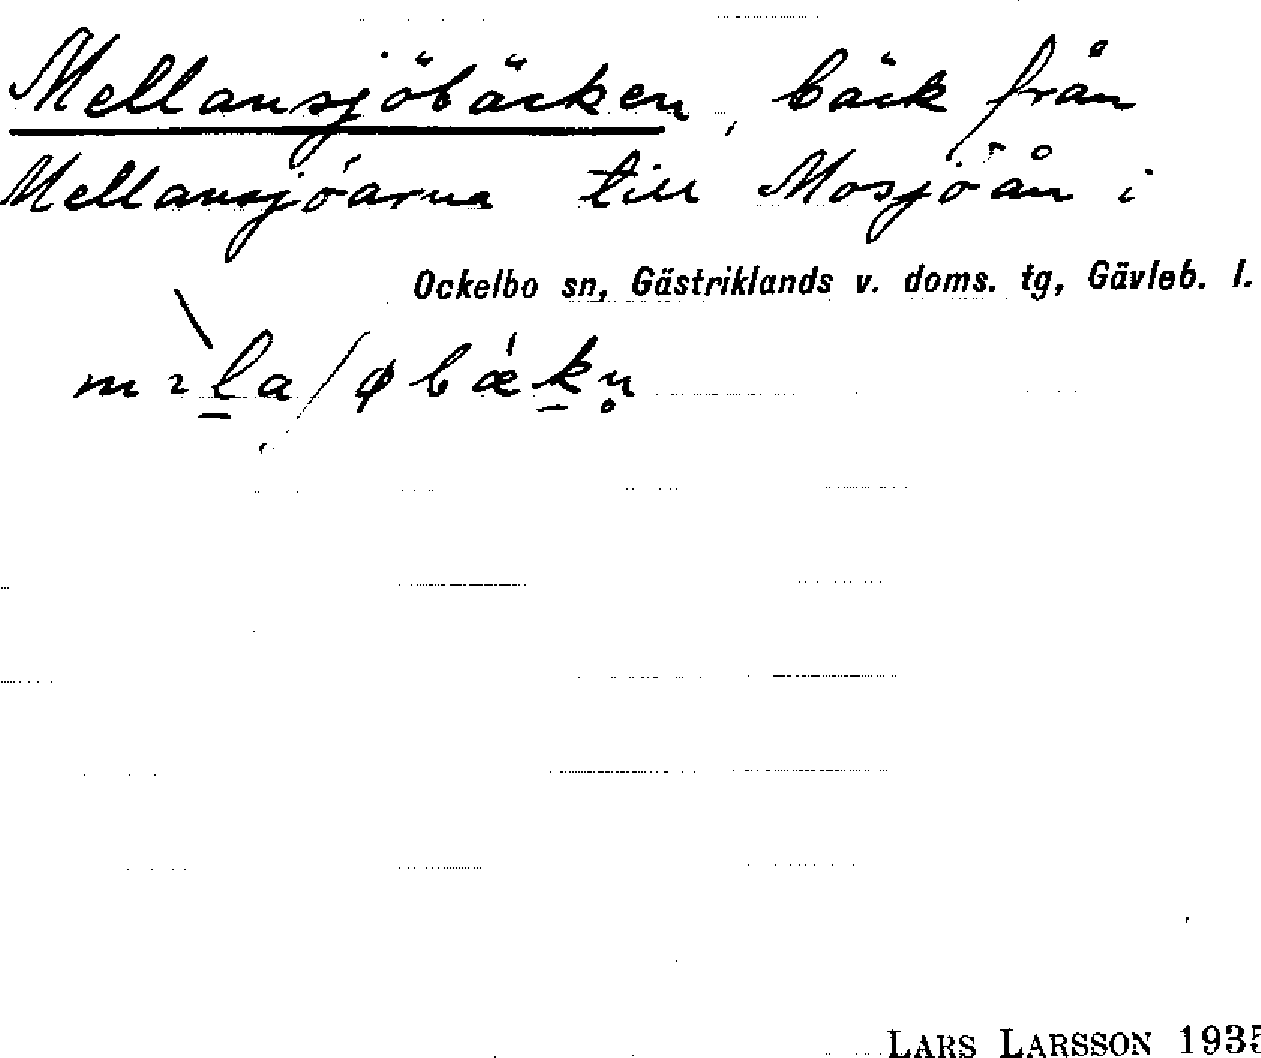 Mellansjöbäcken, bäck från
Mellansjöarna till Mosjöån i
Ockelbo sn, Gästriklands v. doms. tg, Gävleb. l.
LARS LARSSON 1935